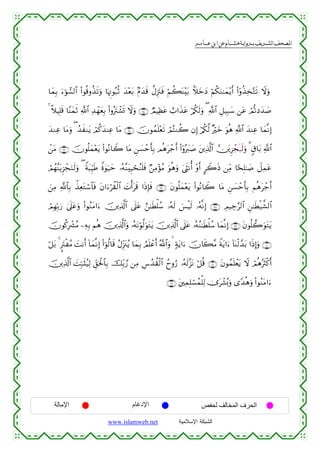 المصحف الشريف برواية هشام عن ابن عامر
وَلَا تَتَّخِذُوٓا۟ أَيْمَٰنَكُمْ دَخَلًۢا بَيْنَكُمْ فَتَزِلَّ قَدَمٌۢ بَعْدَ ثُبُوتِهَا وَتَذُوقُوا۟ ٱلسُّوٓءَ بِمَا
صَدَدتُّمْ عَن سَبِيلِ ٱللَّهِ ۖ وَلَكُمْ عَذَابٌ عَظِيمٌ ﴿٩٤﴾ وَلَا تَشْتَرُوا۟ بِعَهْدِ ٱللَّهِ ثَمَنًا قَلِيلًا ۚ
إِنَّمَا عِندَ ٱللَّهِ هُوَ خَيْرٌ لَّكُمْ إِن كُنتُمْ تَعْلَمُونَ ﴿٩٥﴾ مَا عِندَكُمْ يَنفَدُ ۖ وَمَا عِندَ
ٱللَّهِ بَاقٍ ۗ وَلَيَجْزِيَنَّ ٱلَّذِينَ صَبَرُوٓا۟ أَجْرَهُم بِأَحْسَنِ مَا كَانُوا۟ يَعْمَلُونَ ﴿٩٦﴾ مَنْ
عَمِلَ صَٰلِحًا مِّن ذَكَرٍ أَوْ أُنثَىٰ وَهُوَ مُؤْمِنٌ فَلَنُحْيِيَنَّهُۥ حَيَوٰةً طَيِّبَةً ۖ وَلَنَجْزِيَنَّهُمْ
أَجْرَهُم بِأَحْسَنِ مَا كَانُوا۟ يَعْمَلُونَ ﴿٩٧﴾ فَإِذَا قَرَأْتَ ٱلْقُرْءَانَ فَٱسْتَعِذْ بِٱللَّهِ مِنَ
ٱلشَّيْطَٰنِ ٱلرَّجِيمِ ﴿٩٨﴾ إِنَّهُۥ لَيْسَ لَهُۥ سُلْطَٰنٌ عَلَى ٱلَّذِينَ ءَامَنُوا۟ وَعَلَىٰ رَبِّهِمْ
يَتَوَكَّلُونَ ﴿٩٩﴾ إِنَّمَا سُلْطَٰنُهُۥ عَلَى ٱلَّذِينَ يَتَوَلَّوْنَهُۥ وَٱلَّذِينَ هُم بِهِۦ مُشْرِكُونَ
﴿١٠٠﴾ وَإِذَا بَدَّلْنَآ ءَايَةً مَّكَانَ ءَايَةٍ ۙ وَٱللَّهُ أَعْلَمُ بِمَا يُنَزِّلُ قَالُوٓا۟ إِنَّمَآ أَنتَ مُفْتَرٍۭ ۚ بَلْ
أَكْثَرُهُمْ لَا يَعْلَمُونَ ﴿١٠١﴾ قُلْ نَزَّلَهُۥ رُوحُ ٱلْقُدُسِ مِن رَّبِّكَ بِٱلْحَقِّ لِيُثَبِّتَ ٱلَّذِينَ
ءَامَنُوا۟ وَهُدًى وَبُشْرَىٰ لِلْمُسْلِمِينَ ﴿١٠٢﴾
الحرف المخالف لحفص الإدغام الإمالة
الشبكة الإسلامية www.islamweb.net